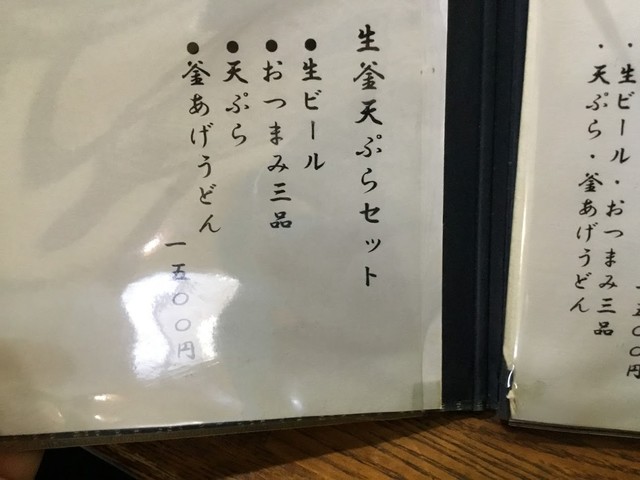 ・生ビール・おつまみ三品
・天ぷら・釜あげうどん
五〇〇円
生釜天ぷらセット
●生ビール
●おつまみ三品
●天ぷら
●釜あげうどん
一五〇〇円